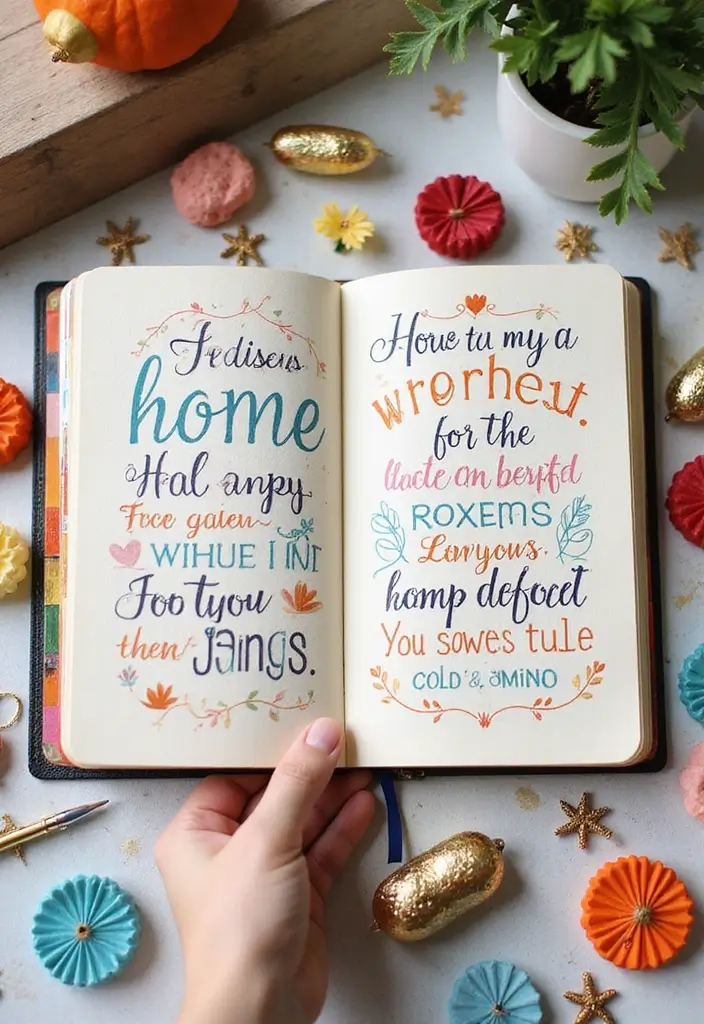 Fediseus
home
Hal anpy
Foce gaien
WIHUE I INI
Foo tyou
then Jaings.
Howe tu my a
wrorheut.
for the
llacte on berpfd
ROXEMS
Lawyous.
homp defocet
You sowes tule
COLD & OMINO